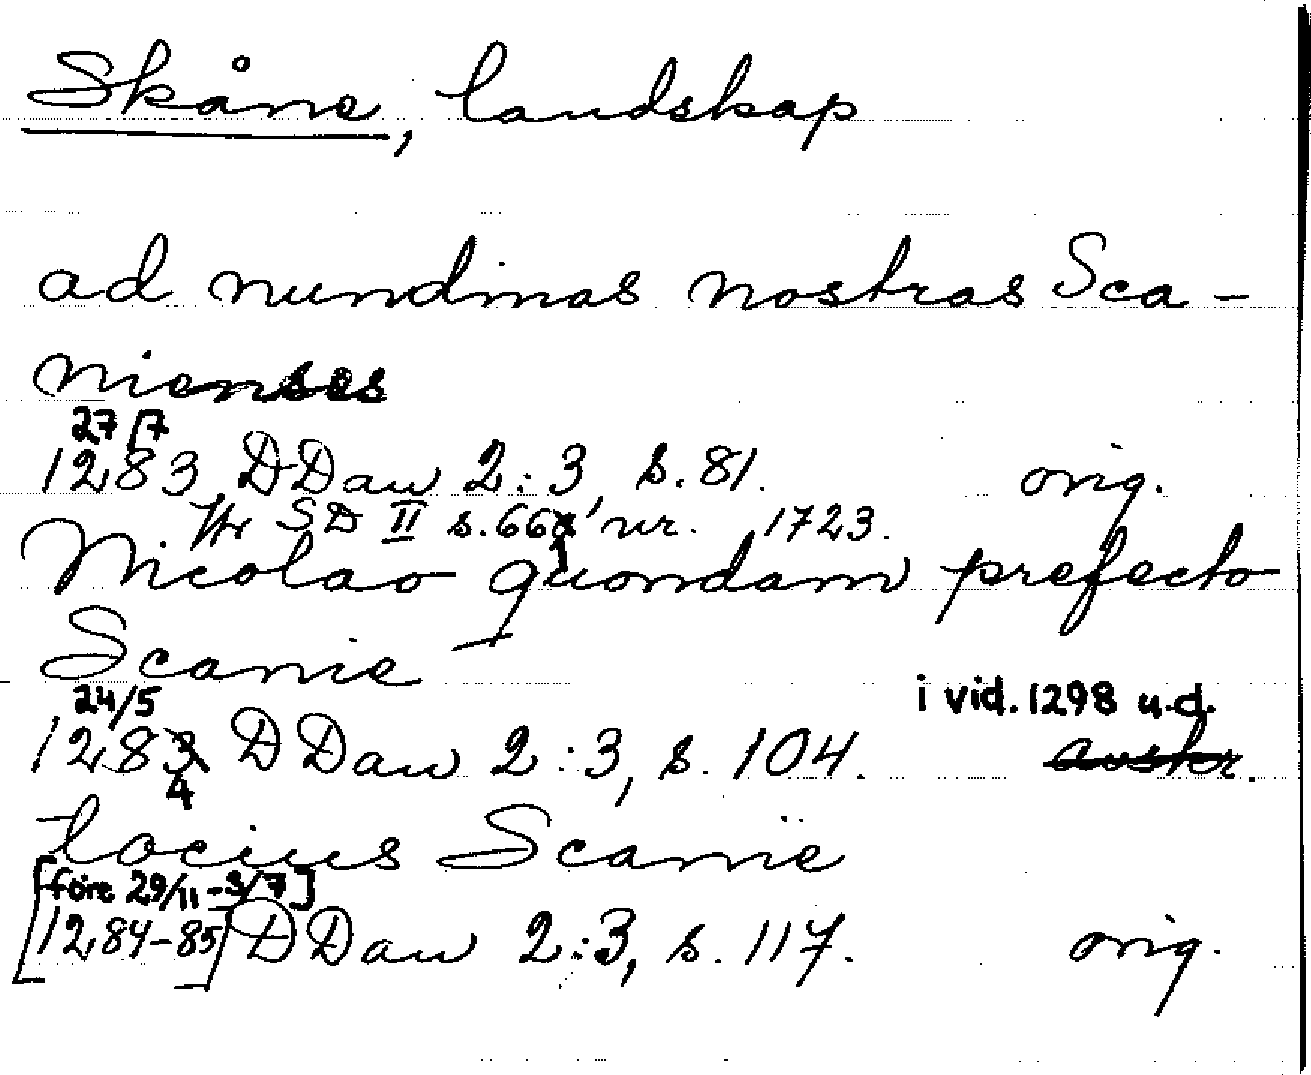 Skåne, landskap
ad nundinas nostras Sca-
nienses
27/7
1283 DDan 2:3, s. 81. orig.
SD II s. 66 nr. 1723.
Nicolao quondam prefecto
Scanie
24/5 i vid. 1298 u.d.
1284 DDan 2:3, s. 104. avskr.
tocius Scanie
[före 29/11-3/7]
[1284-85] DDan 2:3, s. 117. orig.